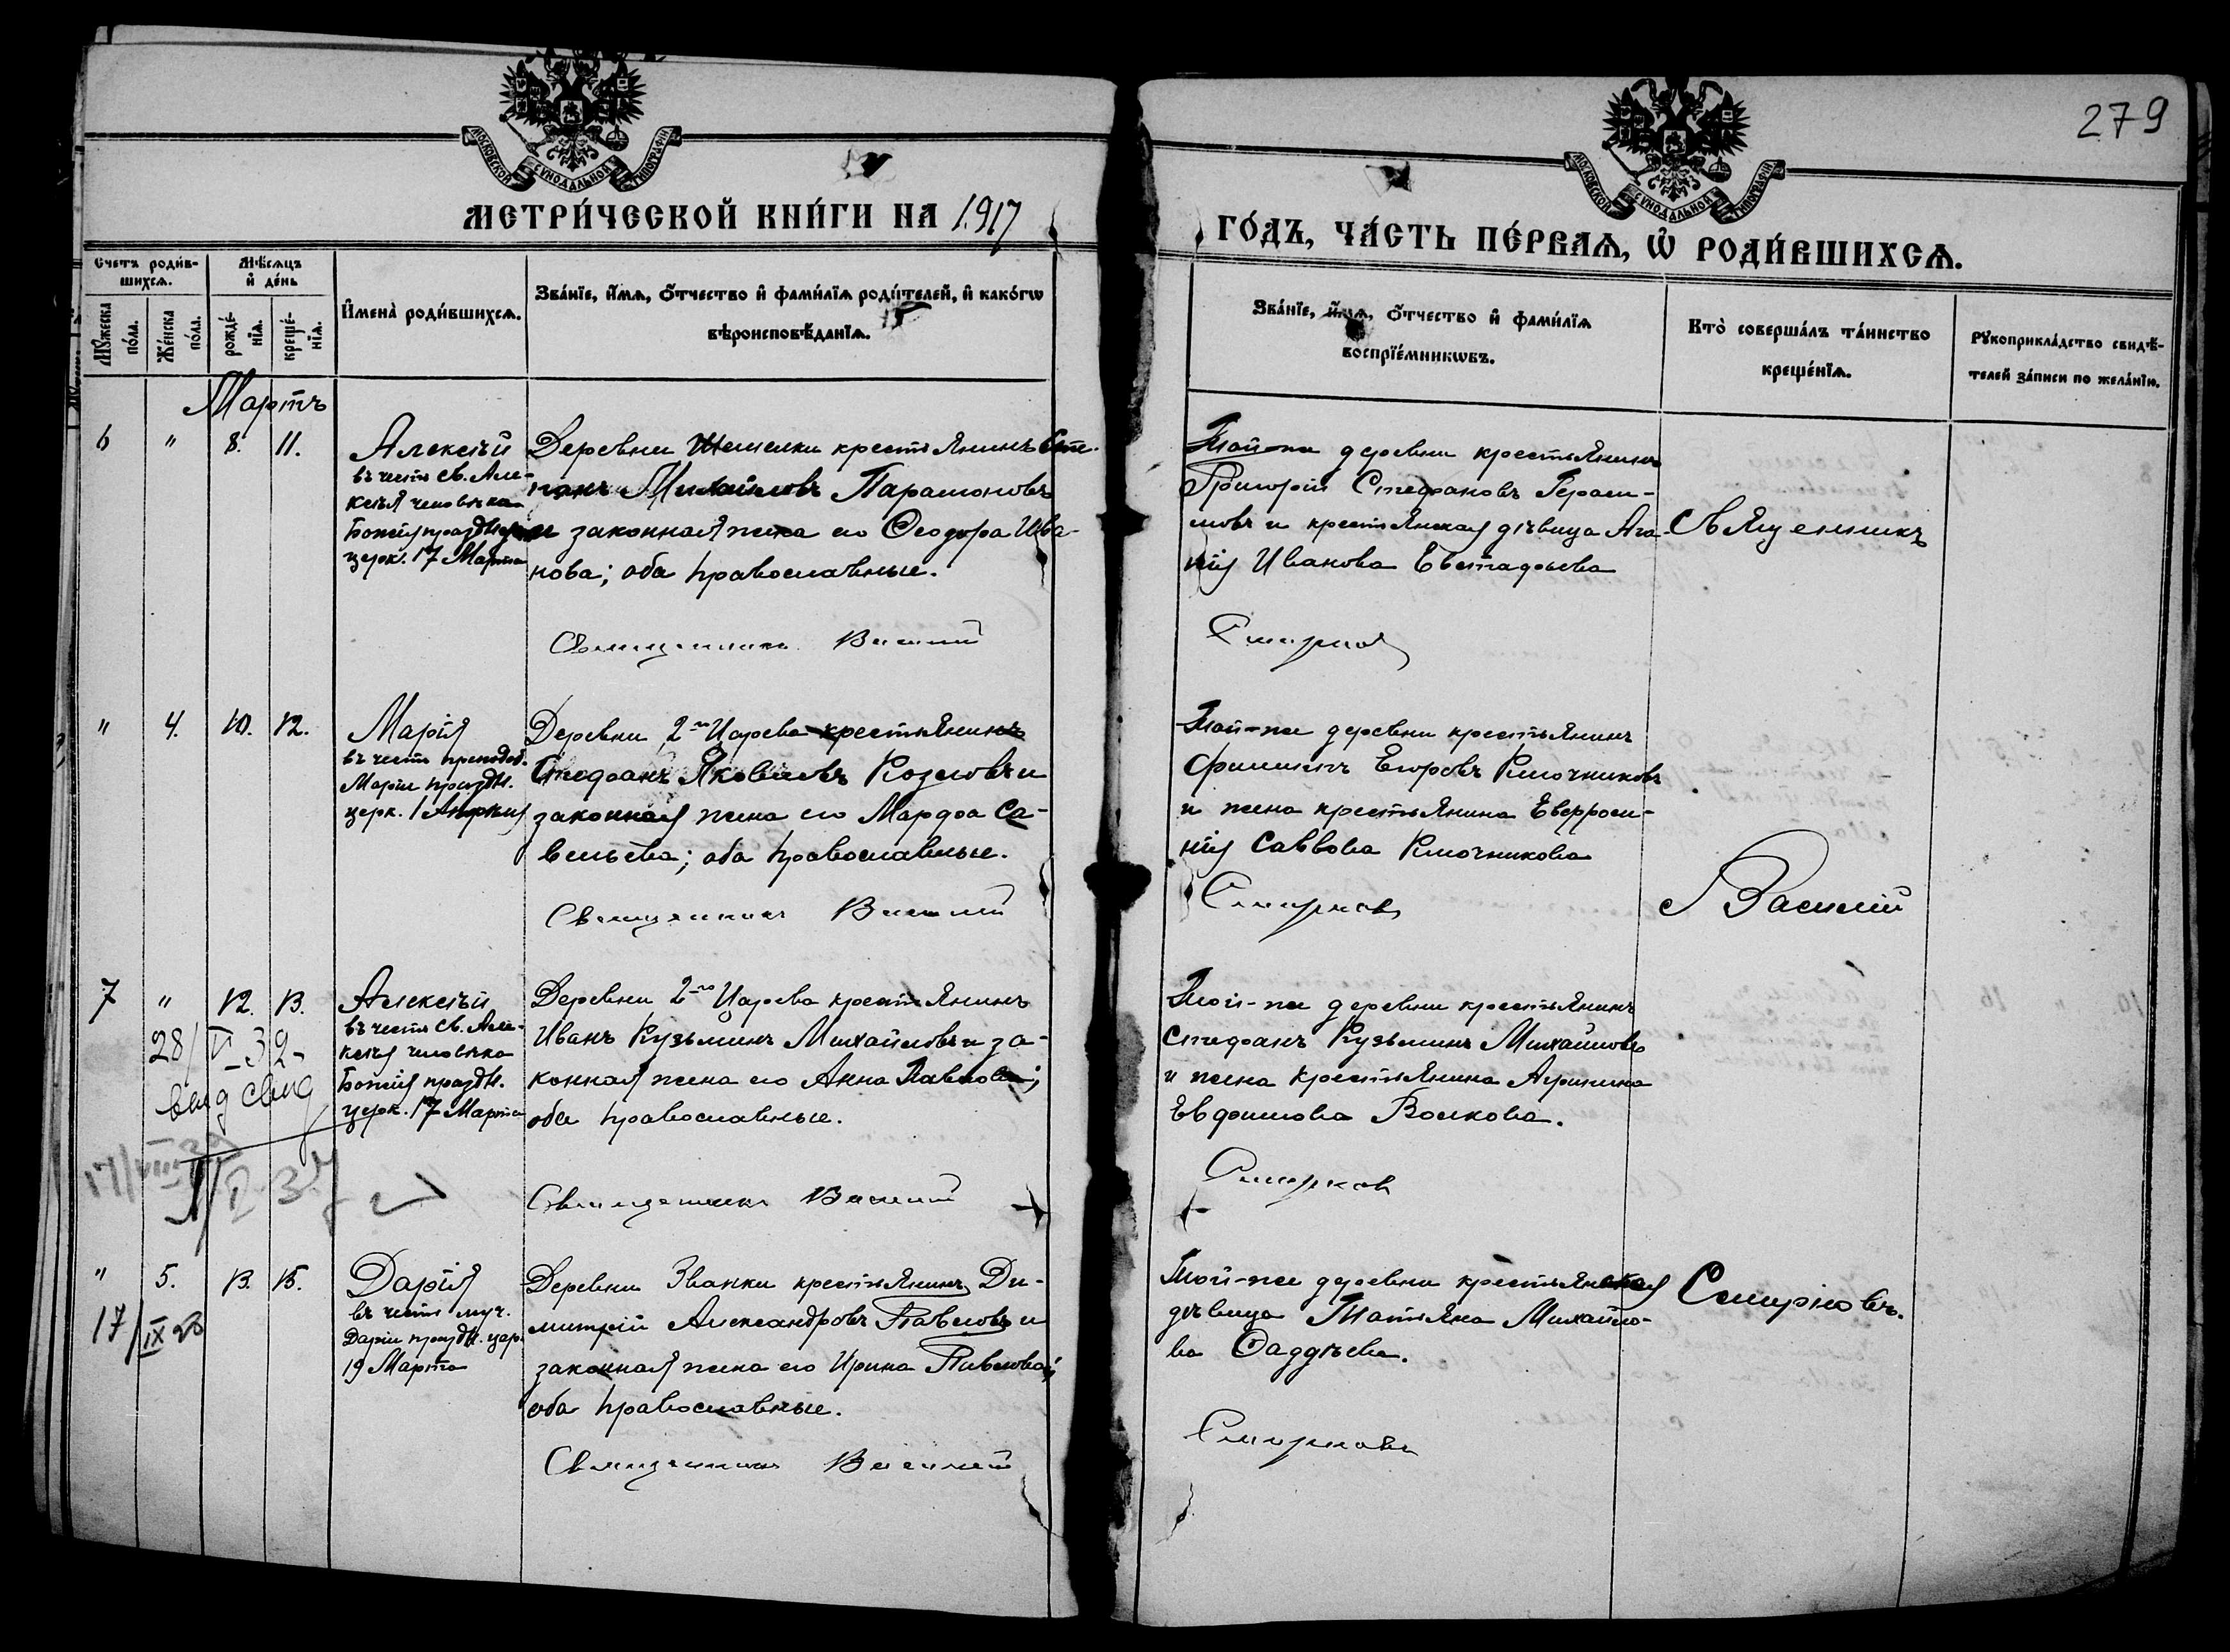 279
МОСКОВСКОЙ СѴНОДАЛЬНОЙ ТИПОГРАФІИ
МОСКОВСКОЙ СѴНОДАЛЬНОЙ ТИПОГРАФІИ
МЕТРИ́ЧЕСКОЙ КНИ́ГИ НА 1917
ГО́ДЪ, ЧА́СТЬ ПЕ́РВАѦ, Ѡ҆ РОДИ́ВШИХСѦ.
Счетъ роди́в-
шихсѧ.
Мѣ́сѧцъ
и҆ де́нь
Мꙋ́жеска
по́ла.
Же́нска
по́ла.
рожде́-
нїѧ.
креще́-
нїѧ.
И҆мена̀ роди́вшихсѧ.
Зва́нїе, и҆́мѧ, ѻ҆́тчество и҆ фами́лїѧ роди́телей, и҆ како́гѡ
вѣроисповѣ́данїѧ.
Зва́нїе, и҆́мѧ, ѻ҆́тчество и҆ фами́лїѧ
воспрїе́мникѡвъ.
Кто̀ соверша́лъ та́инство
креще́нїѧ.
Рꙋкоприкла́дство свидѣ́-
телей за́писи по жела́нїю.
Мартъ
6 " 8. 11.
Алексѣй
въ честь св. Але-
ксѣя человѣка
Божія праздн.
церк. 17 Марта
Деревни крестьянинъ Сте-
панъ Михайловъ Парамоновъ
и законная жена его Ѳеодора Ива-
нова; оба православные.
Священникъ Василій
Той-же деревни крестьянинъ
Григорій Стефановъ Гераси-
мовъ и крестьянская дѣвица Ага-
пія Иванова Евстафьева
Смирновъ
Священникъ
" 4. 10. 12.
Марія
въ честь преподоб.
Маріи праздн.
церк. 1 Апрѣля
Деревни 2го Царева крестьянинъ
Стефанъ Яковлевъ Козловъ и
законная жена его Марфа Са-
вельева; оба православные.
Священникъ Василій
Той-же деревни крестьянинъ
Филиппъ Егоровъ Ключниковъ
и жена крестьянина Евфроси-
нія Саввова Ключникова
Смирновъ
Василій
7 " 12. 13.
Алексѣй
въ честь св. Але-
ксѣя человѣка
Божія праздн.
церк. 17 Марта
28/VI-32-
выд свид
17/VIII
Деревни 2го Царева крестьянинъ
Иванъ Кузьминъ Михайловъ и за-
конная жена его Анна Павлова;
оба православные.
Священникъ Василій
Той-же деревни крестьянинъ
Стефанъ Кузьминъ Михайловъ
и жена крестьянина Агрипина
Евфимова Волкова.
Смирновъ
" 5. 13. 15.
17/IX 28
Дарія
въ честь муч.
Даріи праздн. цер.
19 Марта
Деревни Званки крестьянинъ Ди-
митрій Александровъ Павловъ и
законная жена его Ирина Павлова;
оба православные.
Священникъ Василій
Той-же деревни крестьянская
дѣвица Татьяна Михайло-
ва Ѳаддѣева.
Смирновъ
Смирновъ.